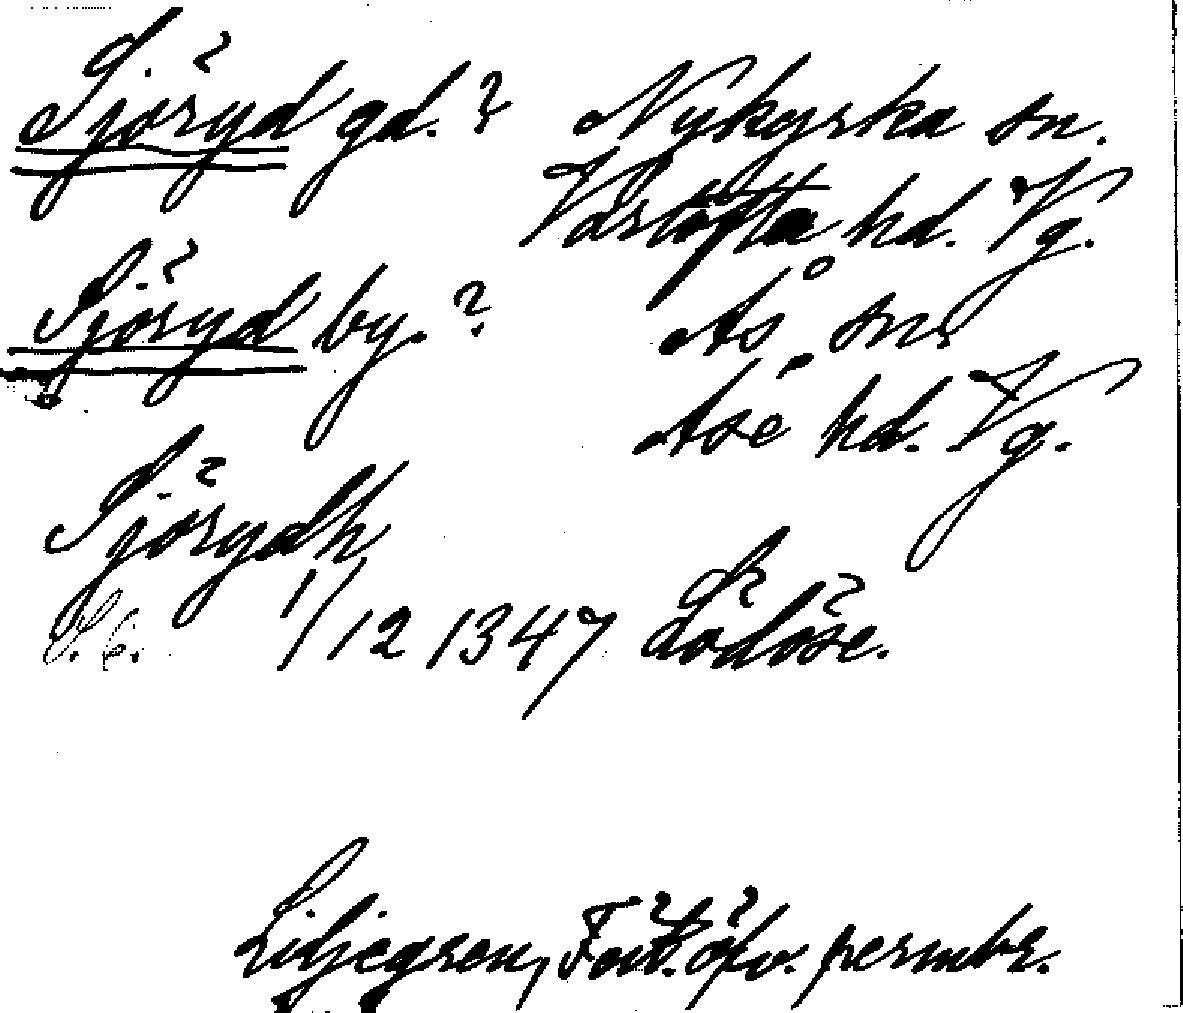 Sjöryd gd.? Nykyrka sn.
Vartofta hd. Vg.
Sjöryd by.? Ås sn.
Åse hd. Vg.
Sjörydh
S.6. 1/12 1347 Lödöse.
Liljegren, Fört. öfv. permbr.